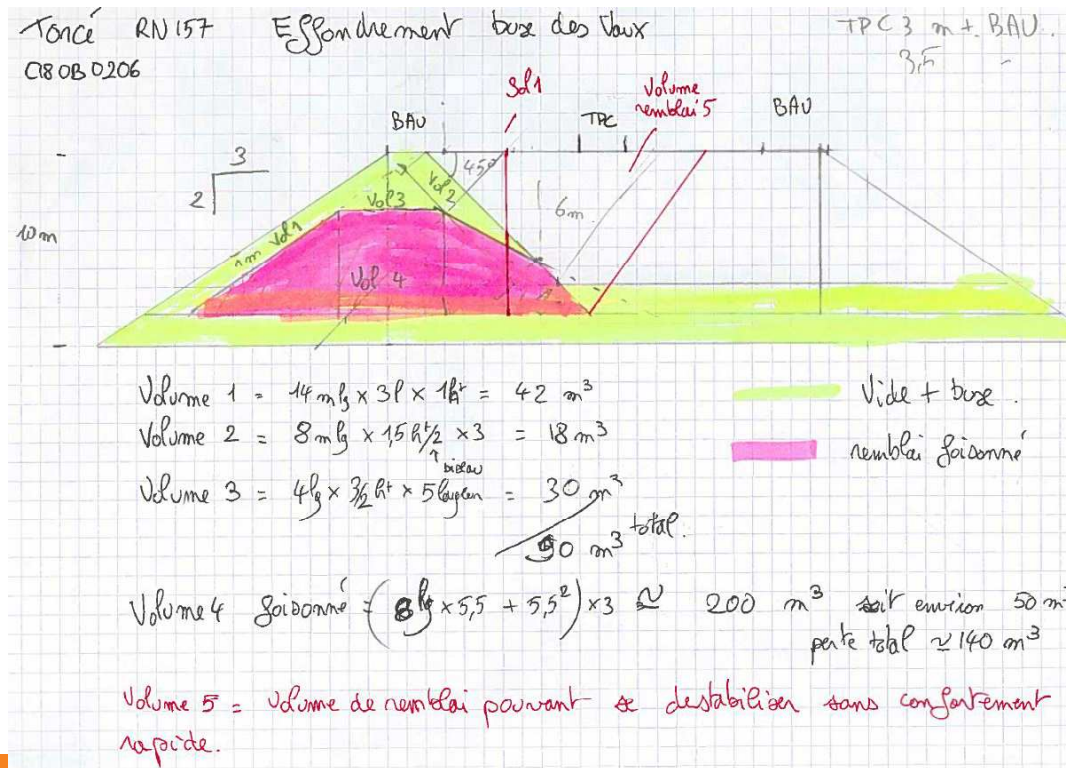 Torcé RN 157 Effondrement buse des Vaux
C18 0B 0206
TPC 3 m + BAU.
3,5
Sol 1
Volume
remblai 5
BAU
TPC
BAU
3
2
45°
10 m
6m
Vol 2
Vol 3
1m Vol 1
Vol 4
Volume 1 = 14 mlg × 3l × 1ht = 42 m³
Volume 2 = 8 mlg × 1,5 ht/2 × 3 = 18 m³
↑ biseau
Volume 3 = 4lg × 3/2 ht × 5 = 30 m³
90 m³ total.
Vide + buse.
remblai foisonné
Volume 4 foisonné = (8 lg × 5,5 + 5,5²) × 3 ≃ 200 m³ soit environ 50 m³
perte total ≃ 140 m³
Volume 5 = volume de remblai pouvant se destabiliser sans confortement
rapide.